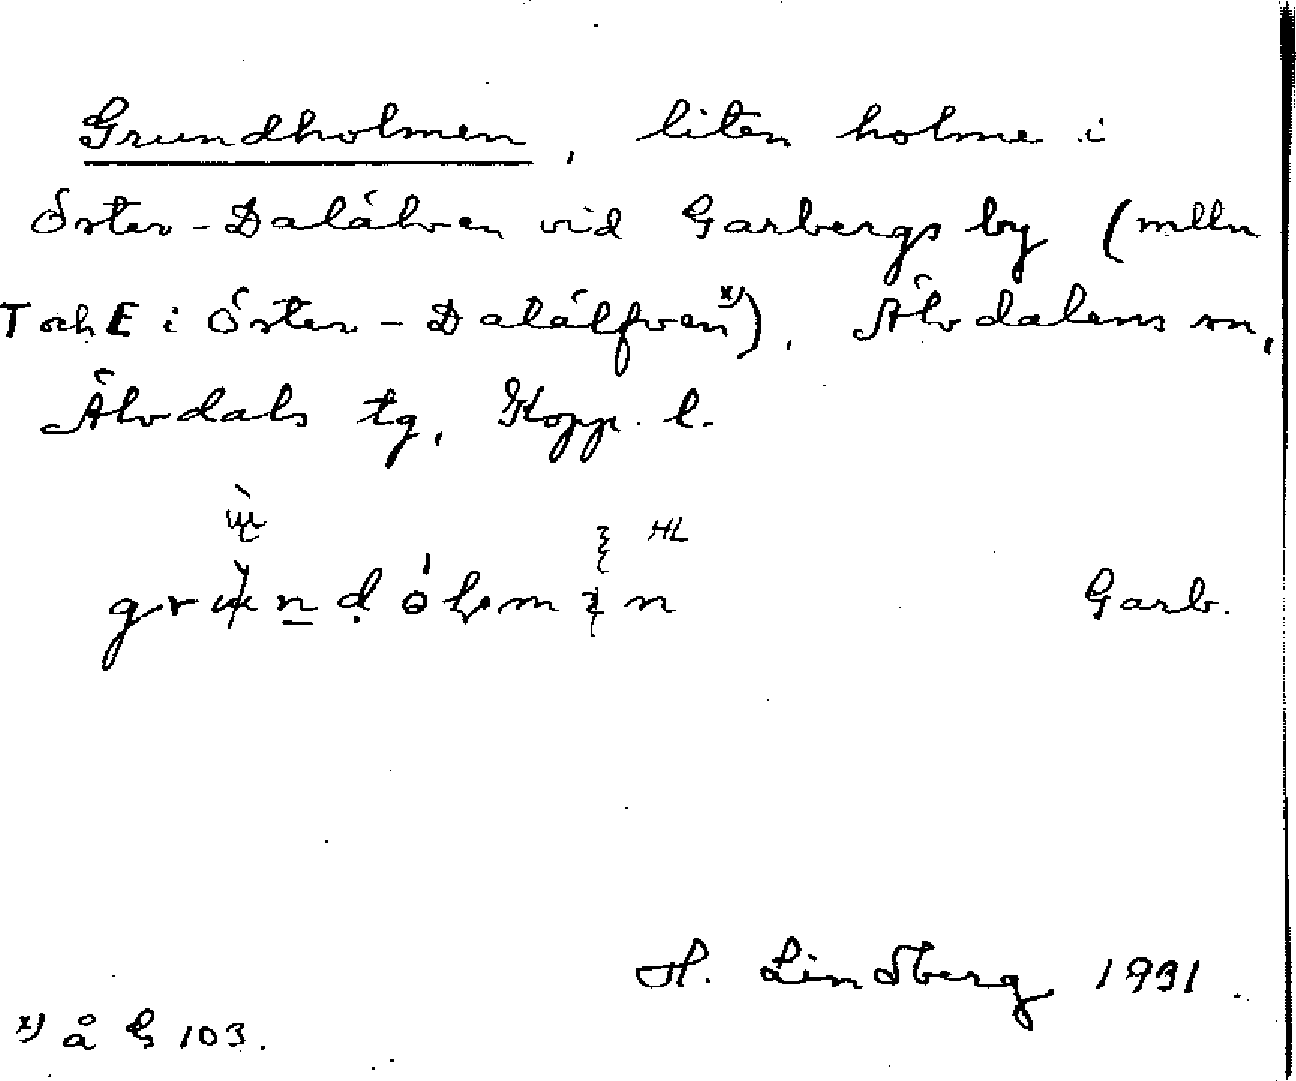 Grundholmen, liten holme i
Öster-Dalälven vid Garbergs by (mlln
T och E i Öster-Dalälfven x)), Älvdalens sn,
Älvdals tg, Kopp. l.
HL
Garb.
H. Lindberg 1931.
x) å G 103.